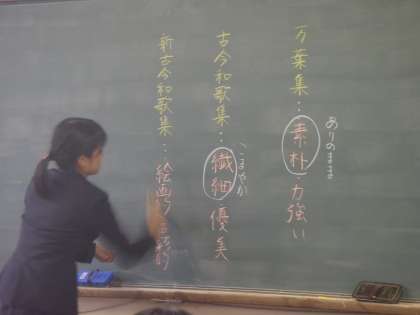 万葉集：素朴・力強い
ありのまま
古今和歌集：繊細・優美
こまやか
新古今和歌集：絵画的